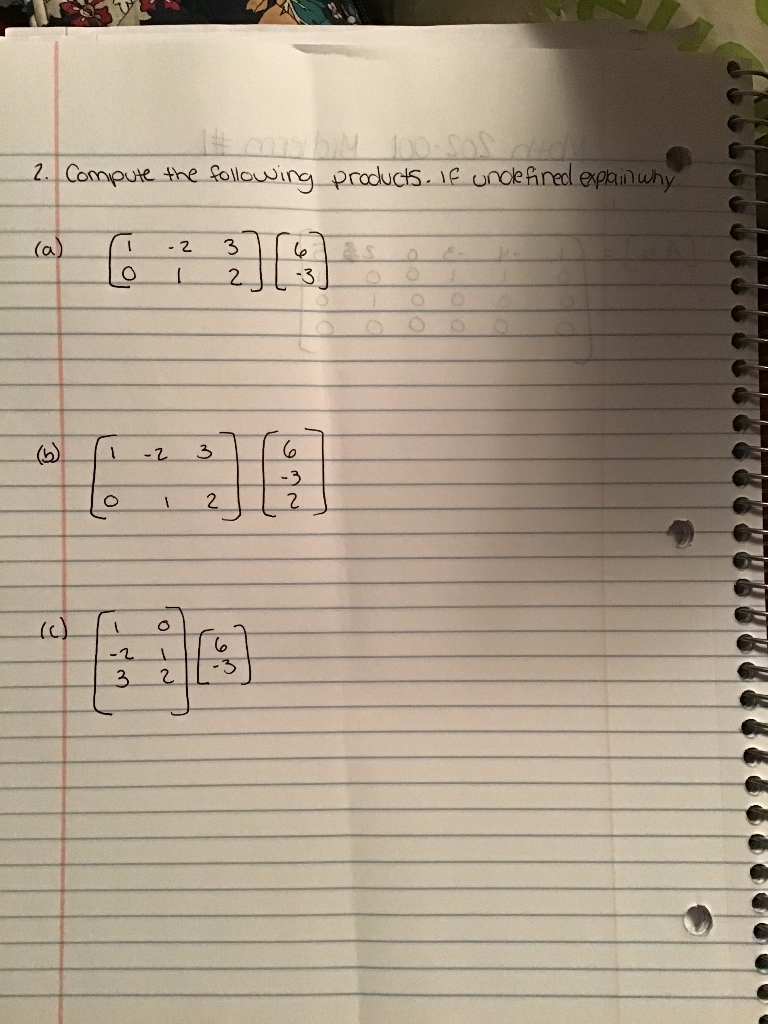 2. Compute the following products. If undefined explain why.
(a) [1 -2 3] [6]
[0 1 2] [-3]
(b) [1 -2 3] [6]
-3
[0 1 2] [2]
(c) [1 0]
[-2 1] [6]
[3 2] [-3]